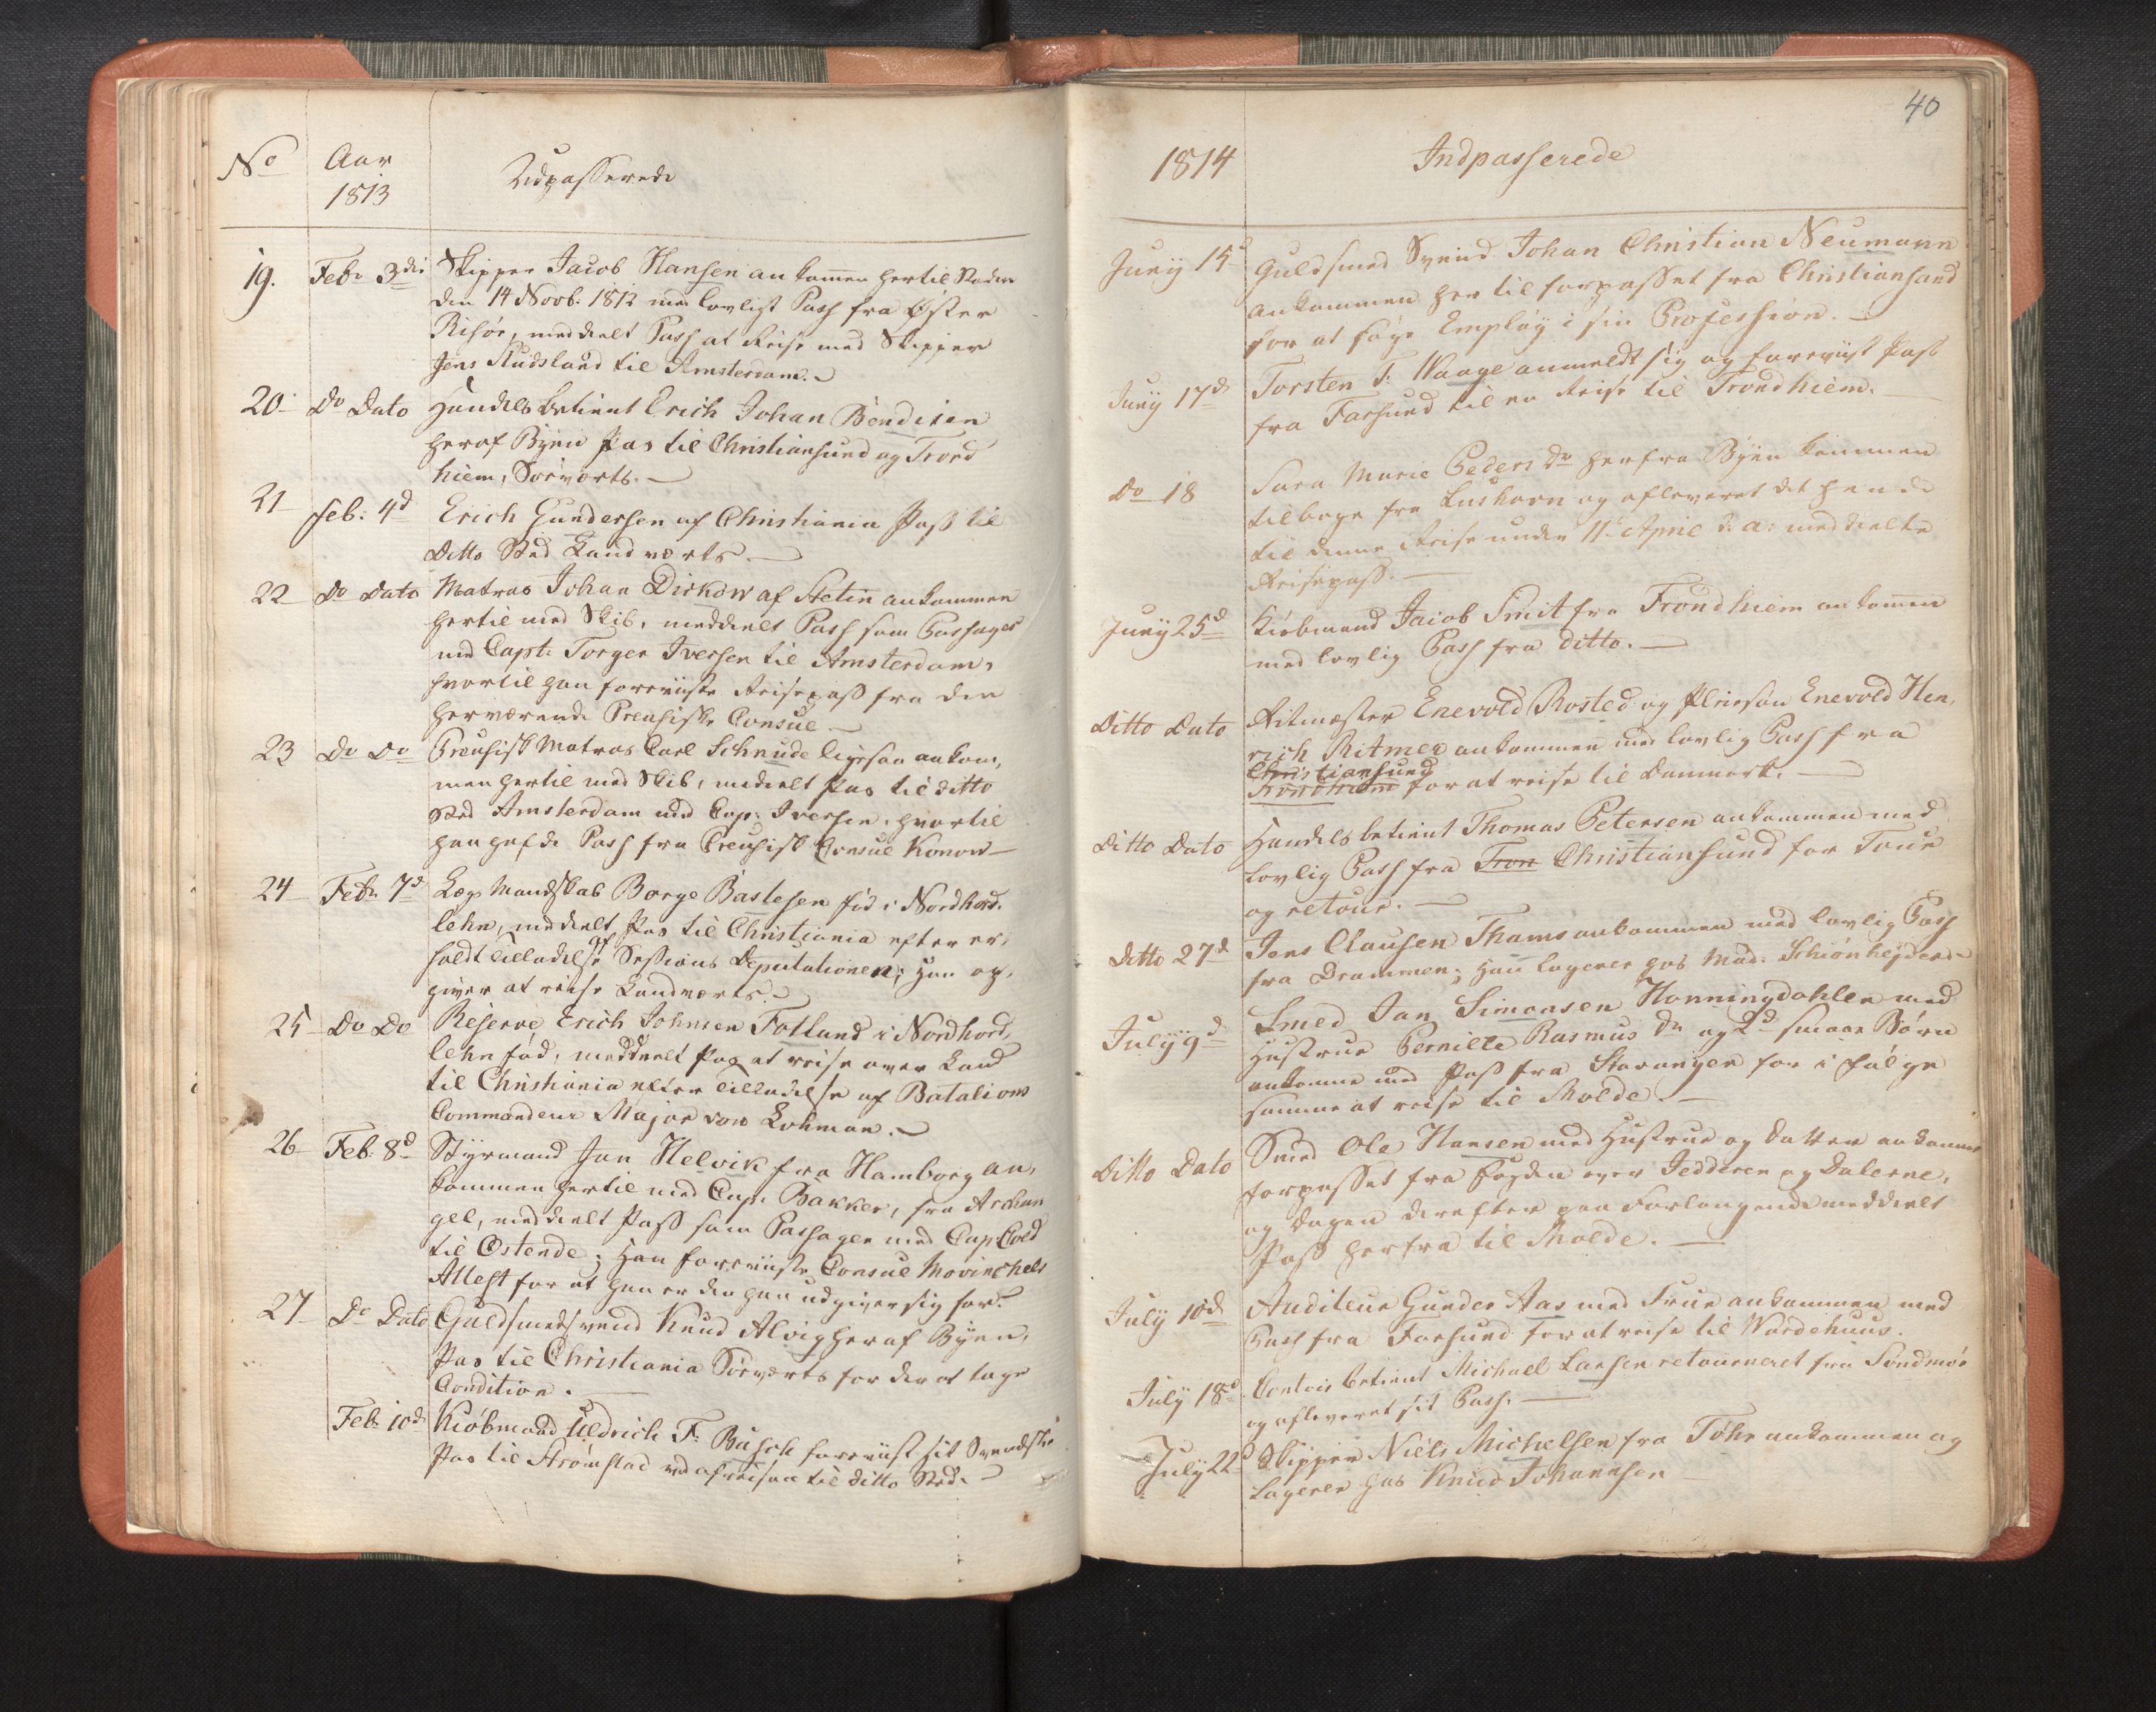 No
Aar
1813
Udpasserede
19.
Feb. 3die
Skipper Jacob Hansen ankommen hertil Staden
den 14 Novb. 1812 med lovligt Pass fra Øster
Risøer, meddeelt Pass at Reise med Skipper
Jens Rudslund til Amsterdam.
20
Do Dato
Handelsbetient Erich Johan Bendixen
heraf Byen Pas til Christiansund og Trond
hiem, Søeverts.
21
feb: 4d
Erich Gundersen af Christiania Pass til
Ditto Sted Landverts.
22
Do Dato
Matros Johan Dirkow af Stetin ankommen
hertil med Skib, meddeelt Pass som Passager
med Capt. Torger Iversen til Amsterdam,
hvortil han foreviiste Reisepass fra den
herværende Preusiske Consul
23
Do Do
Preusisk Matros Carl Schnude ligesaa ankom,
men hertil med Skib, meddeelt Pas til ditto
Sted Amsterdam med Cap. Iversen, hvortil
han hafde Pass fra Preusisk Consul Konow
24
Feb. 7d
Læg Mandskab Borge Baslesen fød i Nordhord.
lehn, meddeelt Pas til Christiania efter er,
holdt Tilladelse af Sessions Deputationen; Han op,
giver at reise Landverts.
25
Do Do
Reserve Erich Johnsen Fotland i Nordhord,
lehn fød, meddeelt Pas at reise over Land
til Christiania efter Tilladelse af Batalions
Commandeur Major von Lohman.
26
Feb. 8d
Styrmand Jan Helvik fra Hamborg an,
kommen hertil med Cap. Bakker, fra Archan
gel, meddeelt Pass som Passager med Cap. Cold
til Ostende; Han foreviiste Consul Mowinchels
Attest for at han er den han udgiver sig for.
27
Do Dato
Guldsmedsvend Knud Alvig heraf Byen,
Pas til Christiania Søeverts for der at tage
Condition.
Feb. 10d
Kiøbmand Uldrich F. Busch foreviist sit Svendske
Pas til Strømstad ved afreisen til ditto Sted.
40
1814
Indpasserede
Juny 15d
Guldsmed Svend Johan Christian Neumann
ankommen her til forpasset fra Christiansand
for at søge Employ i sin Profession.
Juny 17d
Torsten T. Waage anmeldt sig og foreviist Pass
fra Farsund til en Reise til Trondhiem.
Do 18
Sara Marie Peders Dr herfra Byen kommen
tilbage fra Lushavn og afleveret det hende
til denne Reise under 11te April d: a: meddeelte
Reisepass.
Juny 25d
Kiøbmand Jacob Smit fra Trondhiem ankommen
med lovlig Pass fra ditto.
Ditto Dato
Ritmester Enevold Rosted og Pleiesøn Enevold Hen,
rich Ritmer ankommen med lovlig Pass fra
Christiansund
Trondhiem for at reise til Danmark.
Ditto Dato
Handelsbetient Thomas Petersen ankommen med
lovlig Pass fra Tron Christiansund for Tour
og retour.
Ditto 27d
Jens Clausen Thams ankommen med lovlig Pass
fra Drammen; Han logerer hos Mad: Schiønheyder
July 9d
Smed Jan Simonsen Honningdahlen med
Hustrue Pernille Rasmus Dr og 2d smaae Børn
ankomne med Pass fra Stavanger for i følge
samme at reise til Molde.
Ditto Dato
Smed Ole Hansen med Hustrue og Datter ankommet
forpasset fra Fogden over Jedderen og Dalerne,
og Dagen derefter paa Forlangende meddeelt
Pass herfra til Molde.
July 10d
Auditeur Gunder Aas med Frue ankommen med
Pass fra Farsund for at reise til Wardehuus.
July 18d
Contoir betient Michael Larsen retourneret fra Søndmør
og afleveret sit Pass.
July 22d
Skipper Niels Michelsen fra Føhr ankommen og
logerer hos Knud Johannsen